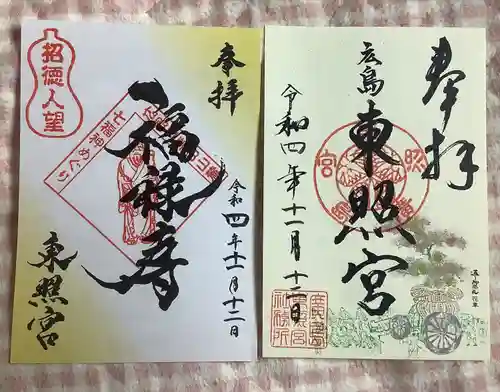 奉拝
招徳人望
七福神めぐり
福禄寿
令和四年十一月十二日
東照宮
奉拝
広島
東照宮
令和四年十一月十二日